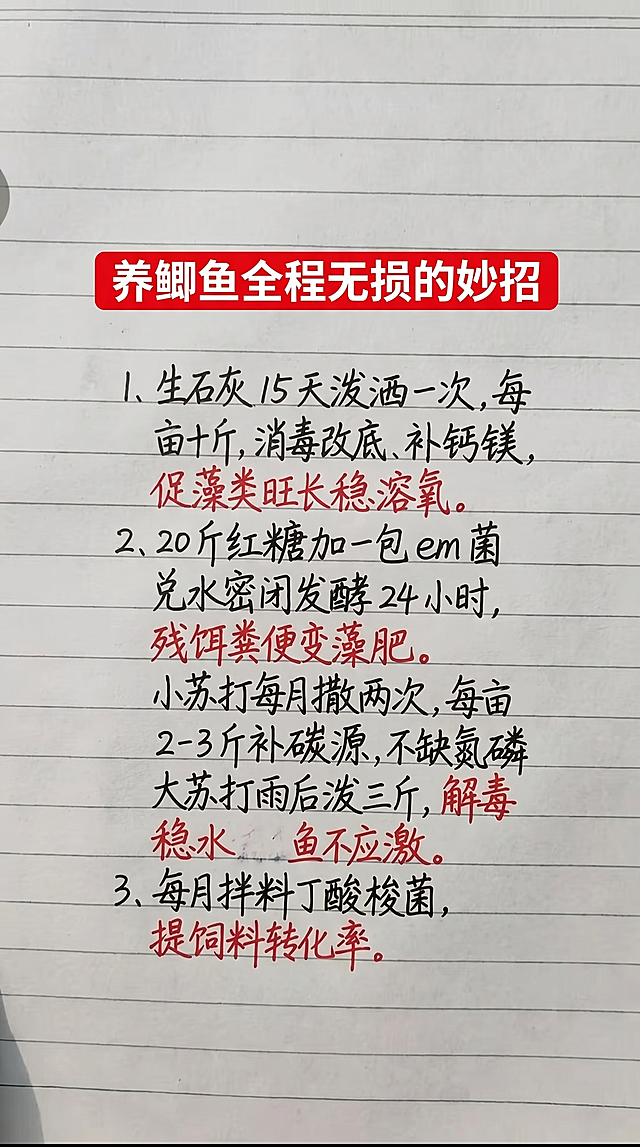 养鲫鱼全程无损的妙招
1、生石灰15天泼洒一次,每
亩十斤,消毒改底、补钙镁,
促藻类旺长稳溶氧。
2、20斤红糖加一包em菌
兑水密闭发酵24小时,
残饵粪便变藻肥。
小苏打每月撒两次,每亩
2-3斤补碳源,不缺氮磷
大苏打雨后泼三斤,解毒
稳水 鱼不应激。
3、每月拌料丁酸梭菌,
提饲料转化率。